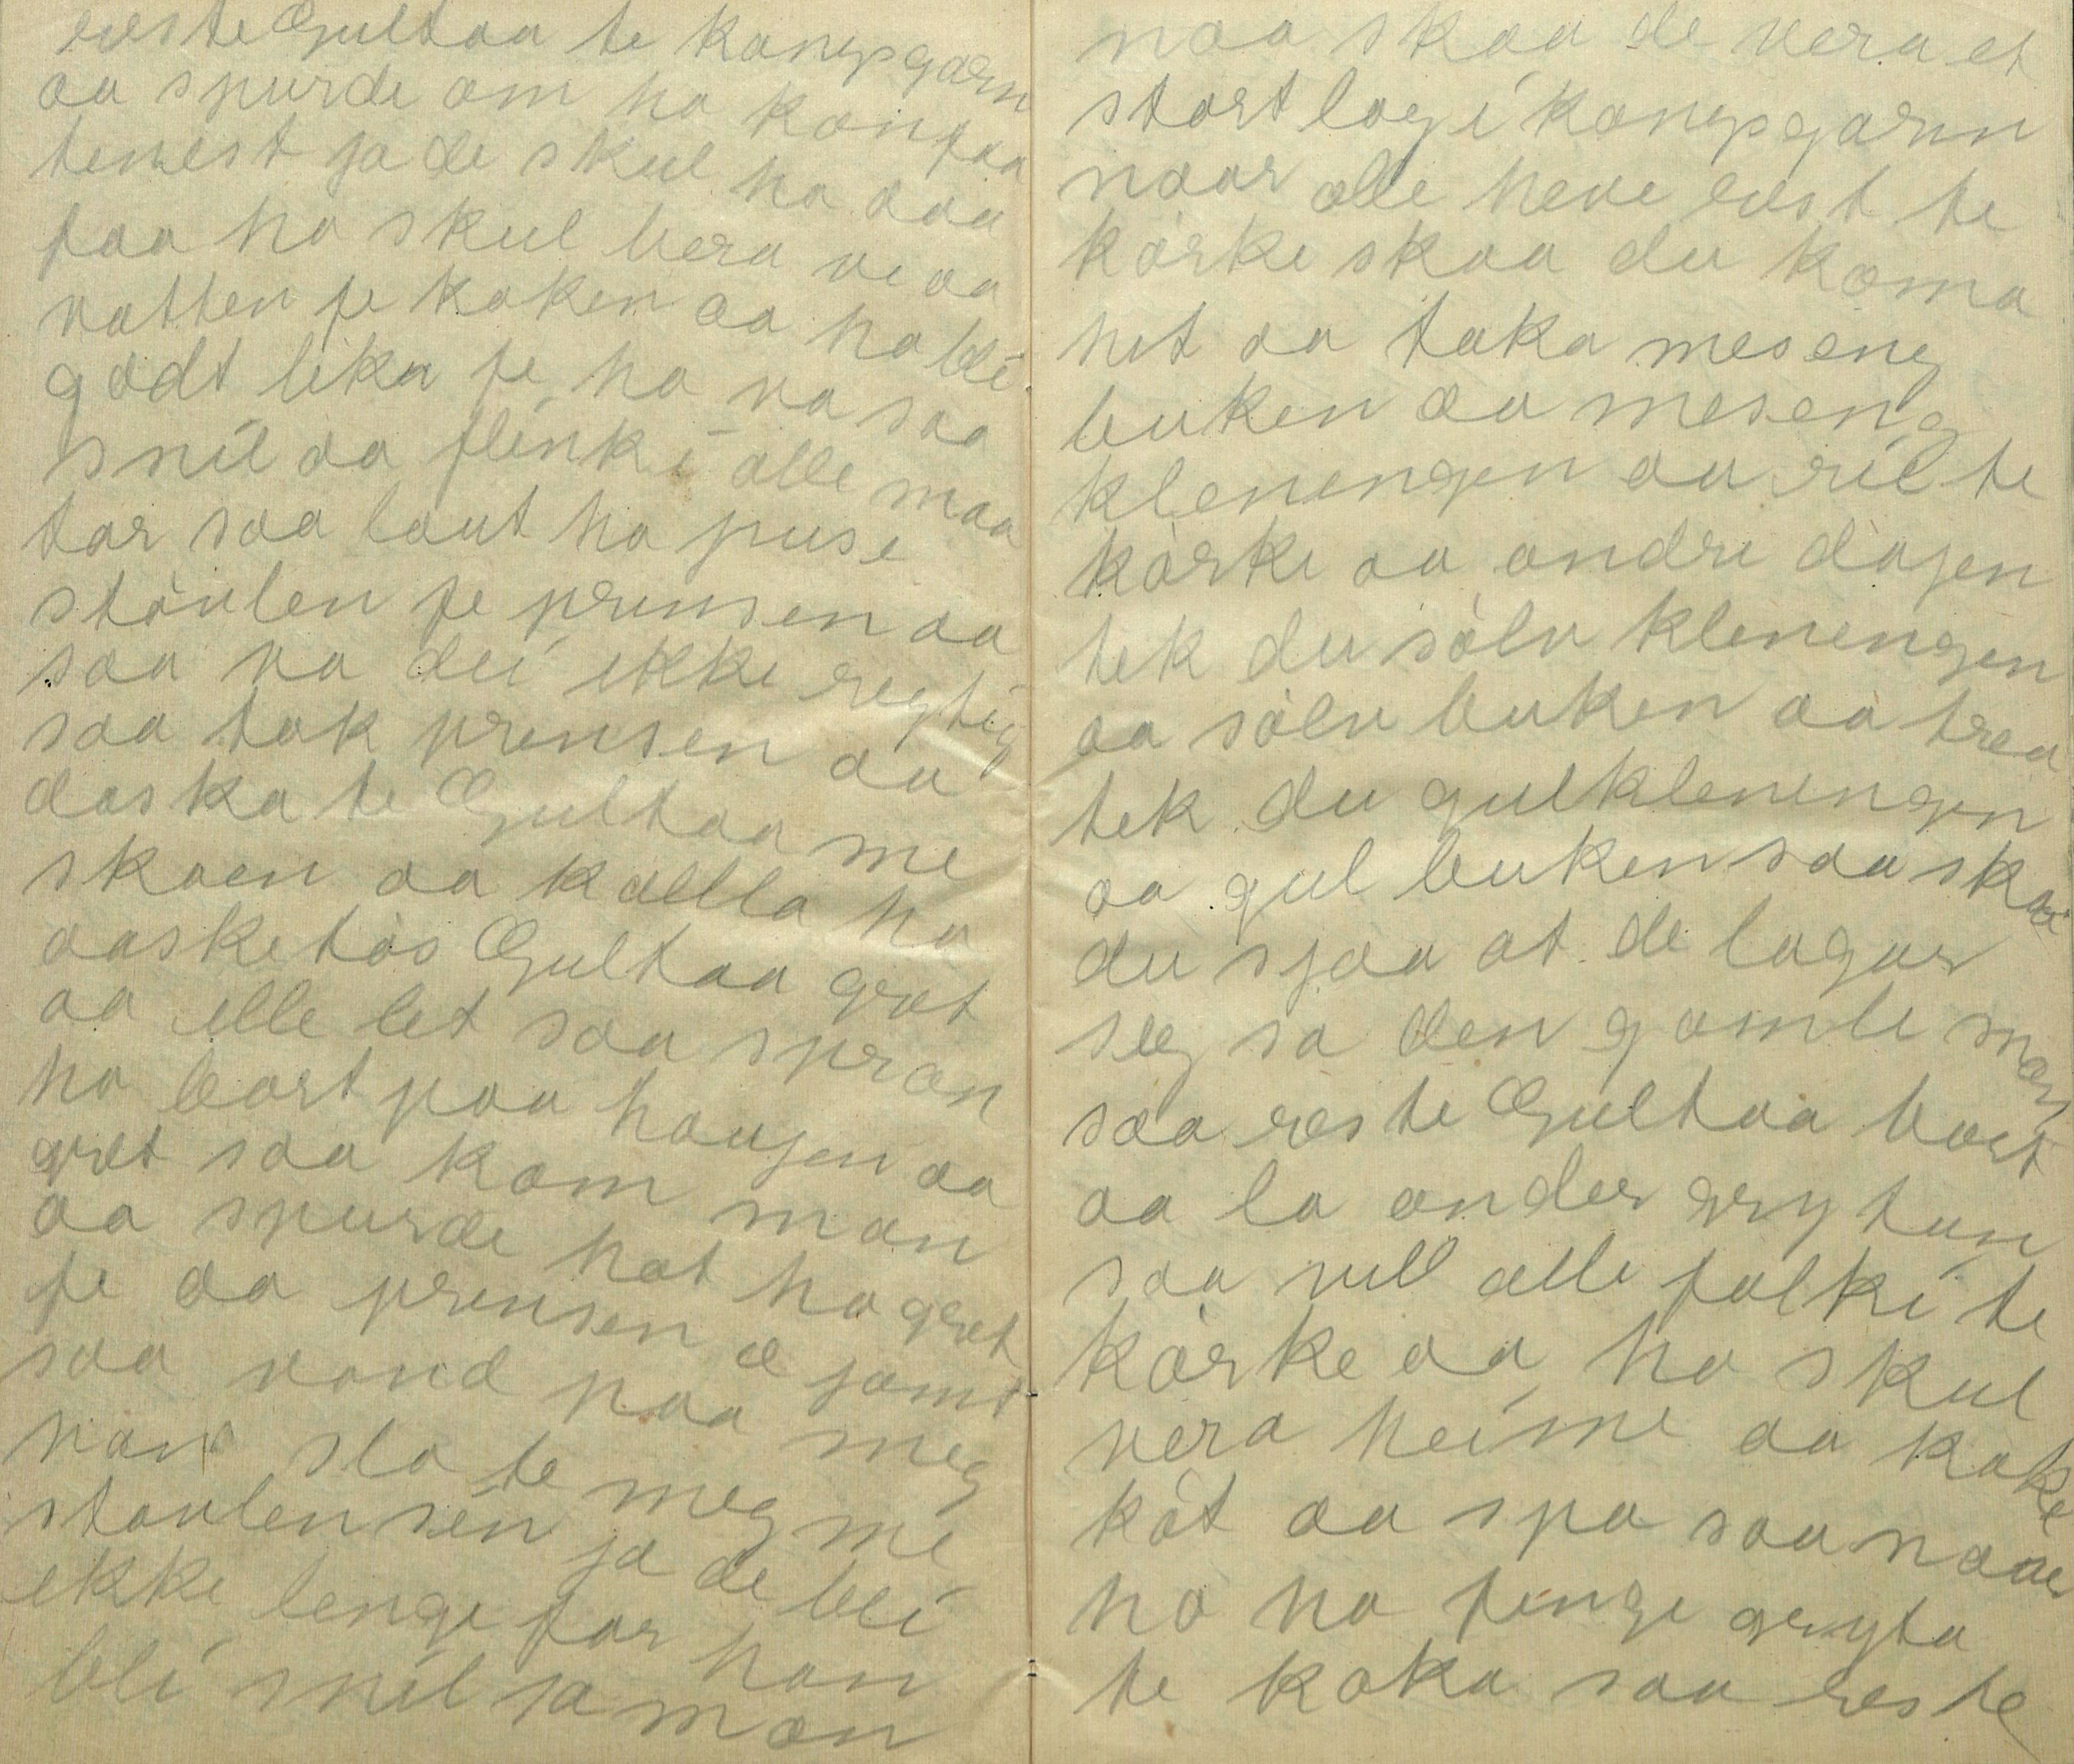 reiste Gultaa te kongsgarn
aa spurde om ho kon faa
tenest ja de skul ho daa
faa ho skul bera ve aa
vatten fe kaken aa ho blei
godt lika fe ho va saa
snil aa flink i alle maa
tar saa laut ho puse
stòvlen fe prinsen aa
saa va dei ikke regtig
saa tok prensen aa
daska te Gultaa me
skoen aa kallla ho
oasketòs Gultaa gret
aa ille let saa spran
ho bort paa haugen aa
gret saa kom man
aa spurde hot ho gret
fe aa prensen æ jamt
saa vond paa meg
han slo te meg me
stovlen sen ja de bli
ikke lenge før han
bli snil sa man
naa skaa de vera et
stort log i kongsgarn
naar alle heve reist te
kòrke skaa du koma
hit aa taka meseng
buken aa meseng
klenengen aa ril te
kòrke aa andre dagen
tek du sòlv klenengen
aa sòlv buken aa trea
tek du gulklenengen
aa gul buken saa skaa
du sjaa at de lagar
seg sa den gamle man
saa reiste Gultaa bort
aa la onder grytun
saa rull alle folki te
kòrke aa ho skul
vera heime aa koke
kòt aa spa saa naar
ho ha fenge gryta
te koka saa reiste